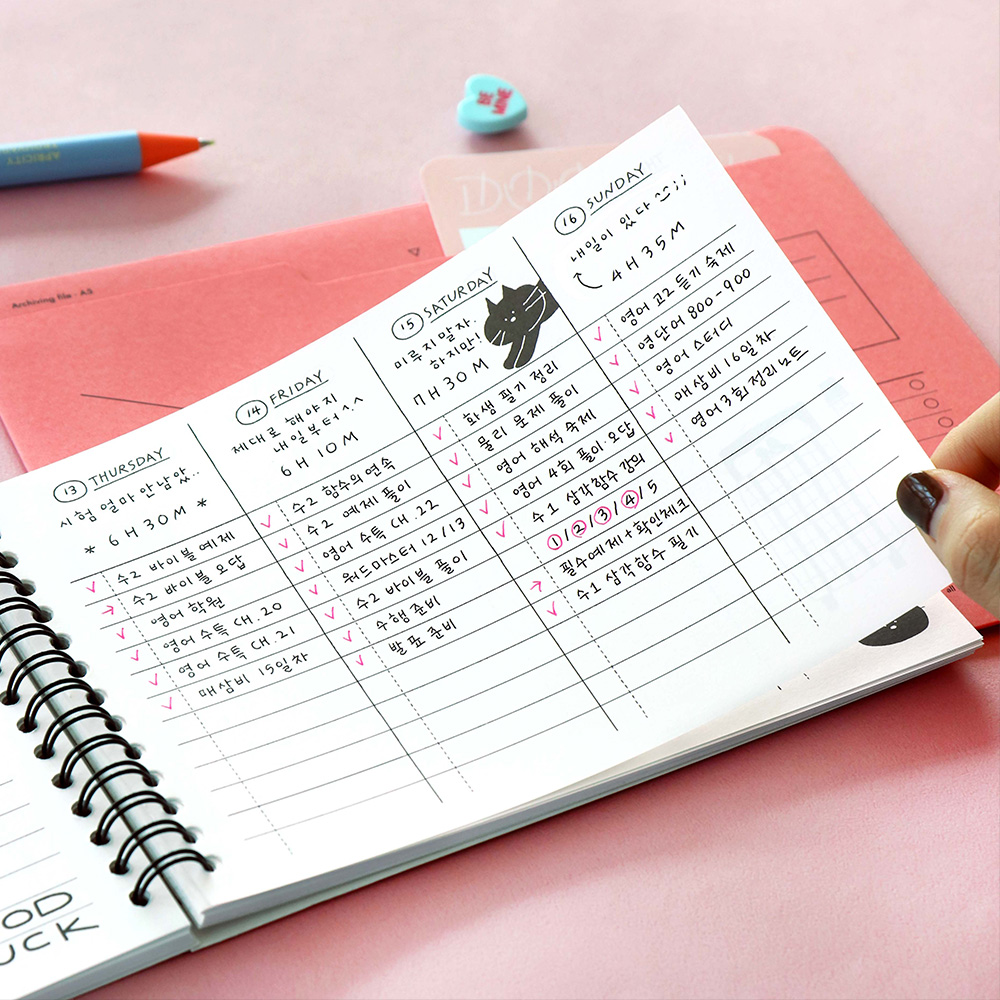 APRICITY
BE
MINE
Archiving file · A5
13 THURSDAY
시험 얼마 안남았..
* 6H 30M *
수2 바이블 예제
수2 바이블 오답
영어 학원
영어 수특 CH.20
영어 수특 CH.21
매삼비 15일차
14 FRIDAY
제대로 해야지
내일부터^.^
6H 10M
수2 함수의 연속
수2 예제 풀이
영어 수특 CH.22
워드마스터 12/13
수2 바이블 풀이
수행 준비
발표 준비
15 SATURDAY
미루지말자.
하지만!
7H 30M
화생 필기 정리
물리 문제 풀이
영어 해석 숙제
영어 4회 풀이 오답
수1 삼각함수 강의
①/②/③/④/5
필수예제+확인체크
수1 삼각함수 필기
16 SUNDAY
내일이 있다
4H 35M
영어 고2 듣기 숙제
영단어 800-900
영어 스터디
매삼비 16일차
영어 3회 정리노트
OD
UCK